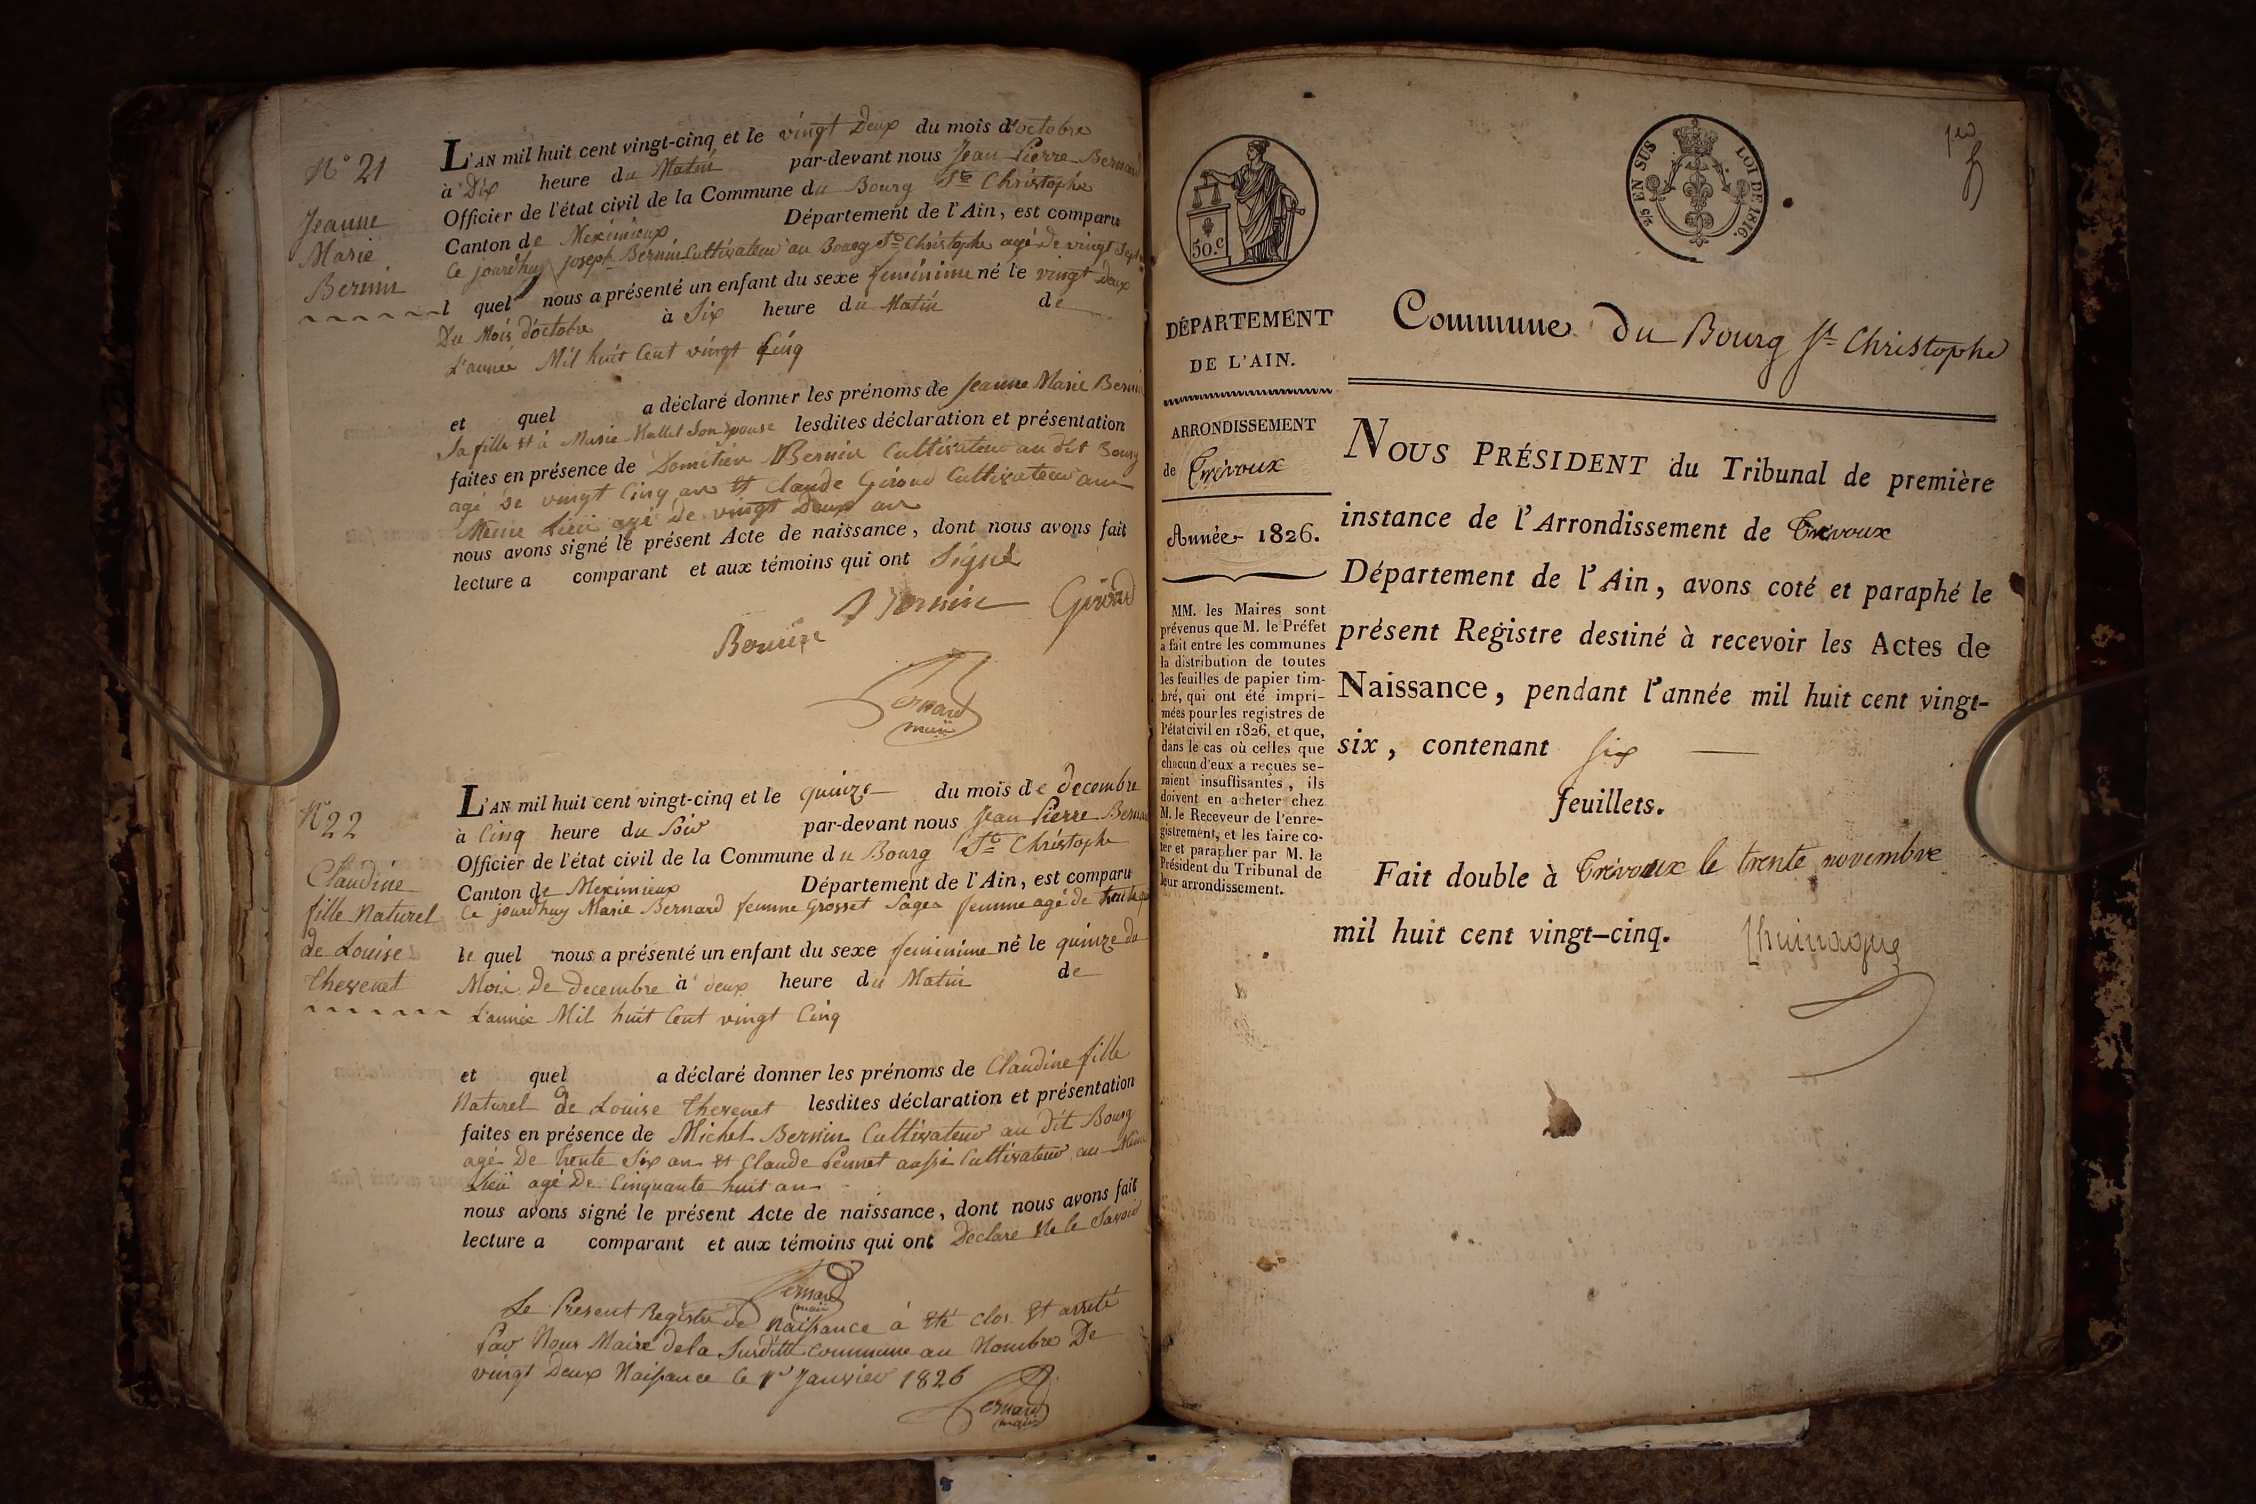 N° 21
Jeanne
Marie
Bernin
L'AN mil huit cent vingt-cinq et le vingt Deux du mois d'octobre
à Dix heure du Matin par-devant nous Jean Pierre Bernard
Officier de l'état civil de la Commune du Bourg St Christophe
Canton de Meximieux Département de l'Ain, est comparu
Ce jourd'huy joseph Bernin Cultivateur au Bourg St Christophe agé de vingt Sept
l quel nous a présenté un enfant du sexe feminime né le vingt deux
Du Mois d'octobre à Six heure du Matin de
L'année Mil huit Cent vingt Cinq
et quel a déclaré donner les prénoms de Jeanne Marie Bernin
Sa fille et à Marie Mallet Son Epouse lesdites déclaration et présentation
faites en présence de Domitien Bernin Cultivateur au dit Bourg
agé De vingt Cinq an et Claude Giroud Cultivateur au
Meme Lieu agé De vingt Deux an
nous avons signé le présent Acte de naissance, dont nous avons fait
lecture a comparant et aux témoins qui ont Signé
Bernin Giroud
Bernin
Bernard
maire
N° 22
Claudine
fille Naturel
de Louise
Thevenet
L'AN mil huit cent vingt-cinq et le quinze du mois de decembre
à Cinq heure du Soir par-devant nous Jean Pierre Bernard
Officier de l'état civil de la Commune du Bourg St Christophe
Canton de Meximieux Département de l'Ain, est comparu
Ce jourd'huy Marie Bernard femme Grosset Sage femme agé de trente
le quel nous a présenté un enfant du sexe feminime né le quinze du
Mois De decembre à deux heure du Matin de
L'année Mil huit Cent vingt Cinq
et quel a déclaré donner les prénoms de Claudine fille
Naturel de Louise Thevenet lesdites déclaration et présentation
faites en présence de Michel Bernin Cultivateur au dit Bourg
agé De trente Six an et Claude Pennet aussi Cultivateur au Meme
Lieu agé De Cinquante huit an
nous avons signé le présent Acte de naissance, dont nous avons fait
lecture a comparant et aux témoins qui ont Declare Ne le Savoir
Bernard
maire
Le Present Registre de Naissance à été clos et arreté
Par Nous Maire de la Susditte commune au Nombre De
vingt Deux Naissance le 1er Janvier 1826
Bernard
maire
50.c
2/5 EN SUS
LOI DE 1816.
DÉPARTEMENT
DE L'AIN.
ARRONDISSEMENT
de Trévoux
Année 1826.
MM. les Maires sont
prévenus que M. le Préfet
a fait entre les communes
la distribution de toutes
les feuilles de papier tim-
bré, qui ont été impri-
mées pour les registres de
l'état civil en 1826, et que,
dans le cas où celles que
chacun d'eux a reçues se-
raient insuffisantes, ils
doivent en acheter chez
M. le Receveur de l'enre-
gistrement, et les faire co-
ter et parapher par M. le
Président du Tribunal de
leur arrondissement.
Commune du Bourg St Christophe
NOUS PRÉSIDENT du Tribunal de première
instance de l'Arrondissement de Trévoux
Département de l'Ain, avons coté et paraphé le
présent Registre destiné à recevoir les Actes de
Naissance, pendant l'année mil huit cent vingt-
six, contenant six
feuillets.
Fait double à Trévoux le trente novembre
mil huit cent vingt-cinq.